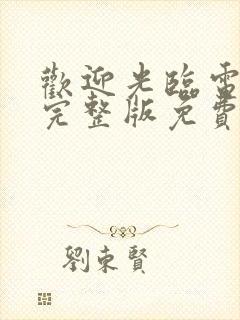 歡迎光臨電
完整版免費
劉東賢